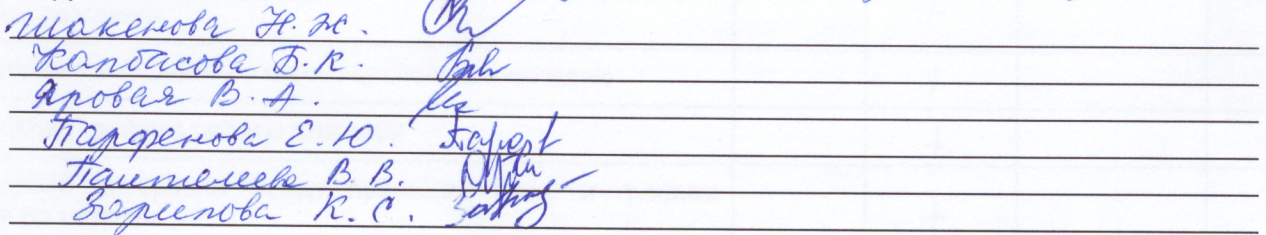 Шакенова Н.Ж.
Капбасова Б.К.
Яровая В.А.
Парфенова Е.Ю.
Пантелеева В.В.
Зарипова К.С.